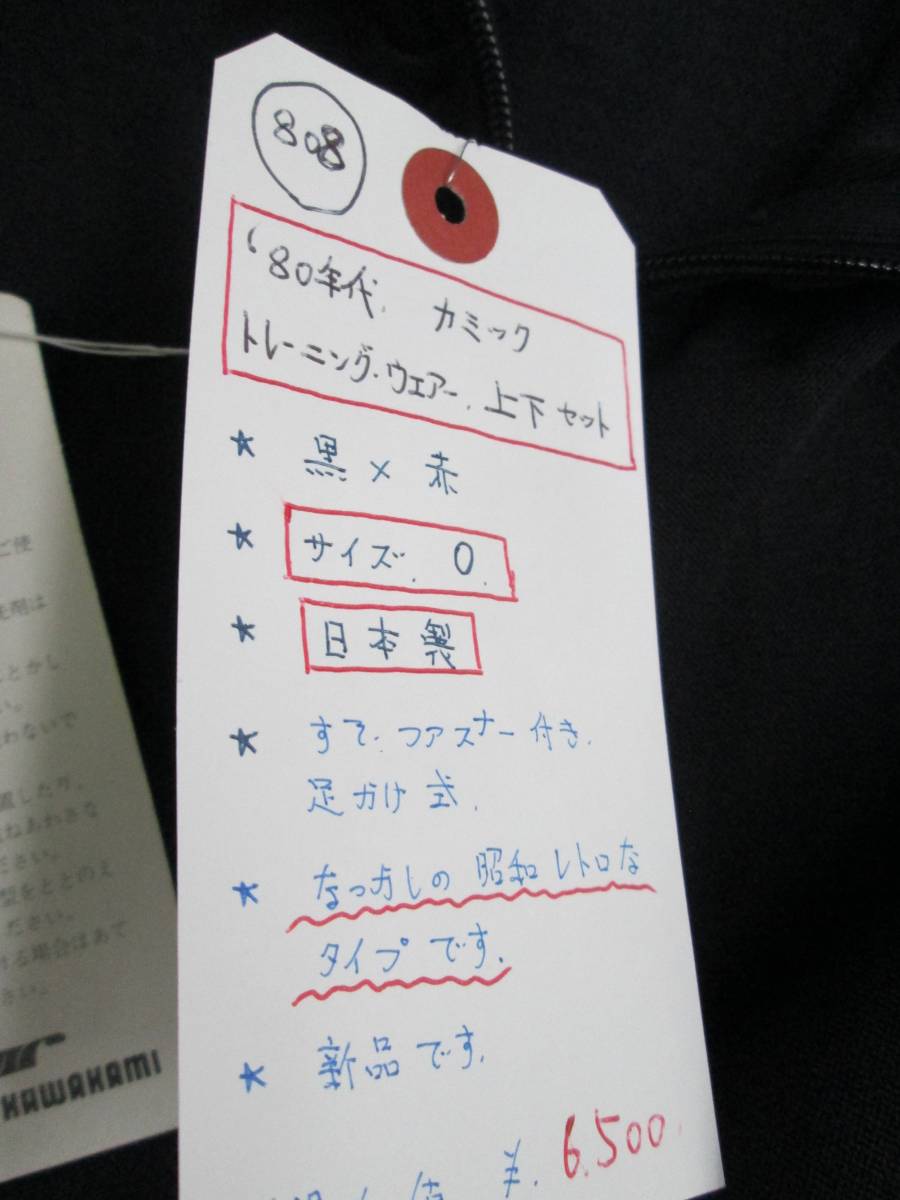 808
'80年代. カミック
トレーニング.ウェアー. 上下 セット
★ 黒 × 赤
★ サイズ. 0.
★ 日本製
★ すそ. ファスナー 付き.
足かけ 式.
★ なつかしの 昭和 レトロな
タイプ です.
★ 新品です.
¥. 6.500.
ご使
洗剤は
とかし
い。
わないで
置したり、
ねあわさな
ださい。
型をととのえ
ださい。
ける場合はあて
さい。
KAWAKAMI